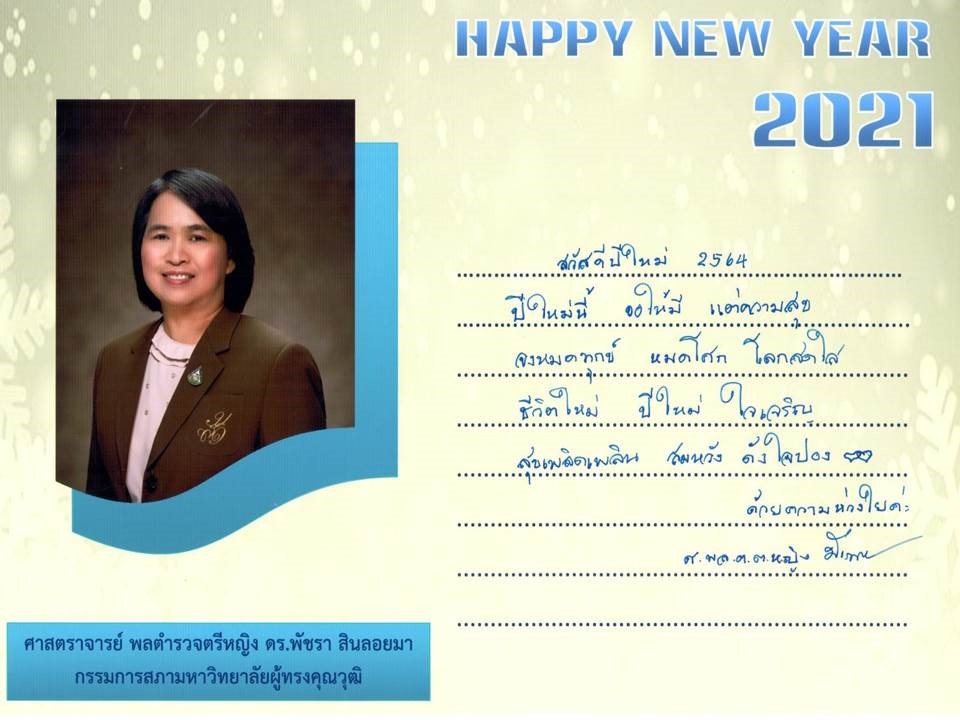 HAPPY NEW YEAR
2021
สวัสดีปีใหม่ 2564
ปีใหม่นี้ ขอให้มี แต่ความสุข
จงหมดทุกข์ หมดโศก โลกสดใส
ชีวิตใหม่ ปีใหม่ ใจเจริญ
สุขเพลิดเพลิน สมหวัง ดังใจปอง
ด้วยความห่วงใยค่ะ
ศ.พล.ต.ต.หญิง
ศาสตราจารย์ พลตำรวจตรีหญิง ดร.พัชรา สินลอยมา
กรรมการสภามหาวิทยาลัยผู้ทรงคุณวุฒิ